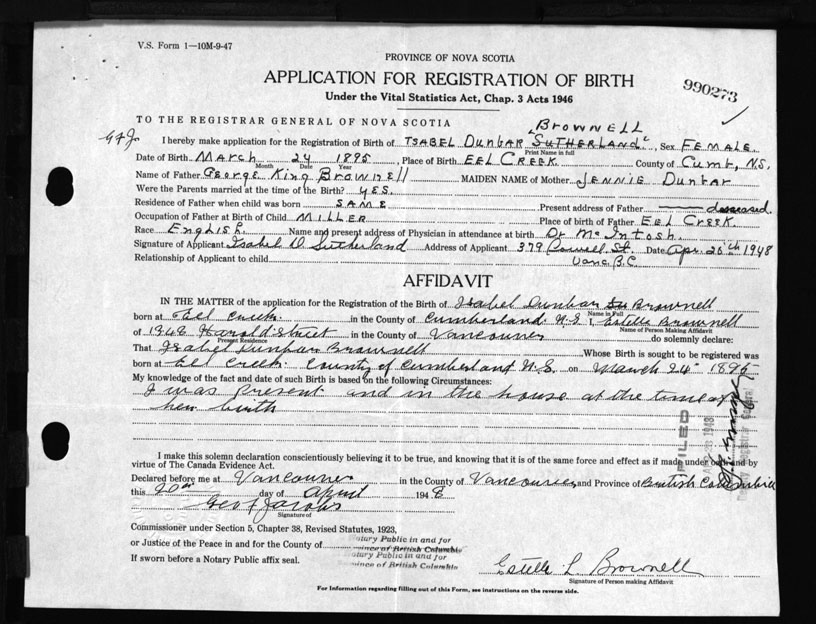 V.S. Form 1—10M-9-47
PROVINCE OF NOVA SCOTIA
APPLICATION FOR REGISTRATION OF BIRTH
990273
Under the Vital Statistics Act, Chap. 3 Acts 1946
TO THE REGISTRAR GENERAL OF NOVA SCOTIA
BROWNELL
I hereby make application for the Registration of Birth of ISABEL DUNBAR SUTHERLAND, Sex FEMALE.
Print Name in full
Date of Birth MARCH 24 1895, Place of Birth EEL CREEK. County of Cumb, N.S.
Month Date Year
Name of Father GEORGE King BROWNELL MAIDEN NAME of Mother JENNIE Dunbar
Were the Parents married at the time of the Birth? YES.
Residence of Father when child was born SAME Present address of Father deceased.
Occupation of Father at Birth of Child MILLER Place of birth of Father EEL CREEK.
Race English. Name and present address of Physician in attendance at birth Dr McIntosh.
Signature of Applicant Isabel D. Sutherland Address of Applicant 379 Powell St. Date Apr. 20th 1948
Relationship of Applicant to child Vanc. B.C.
AFFIDAVIT
IN THE MATTER of the application for the Registration of the Birth of Isabel Dunbar Brownell
Name in Full
born at Eel Creek in the County of Cumberland N.S. I, Estelle Brownell
Name of Person Making Affidavit
of 1948 Harold Street in the County of Vancouver do solemnly declare:
Present Residence
That Isabel Dunbar Brownell Whose Birth is sought to be registered was
born at Eel Creek County of Cumberland N.S. on March 24 1895
My knowledge of the fact and date of such Birth is based on the following Circumstances:
I was present and in the house at the time of
her birth
FILED
I make this solemn declaration conscientiously believing it to be true, and knowing that it is of the same force and effect as if made under oath and by
virtue of The Canada Evidence Act.
Declared before me at Vancouver in the County of Vancouver and Province of British Columbia
this 20th day of April 1948
Geo F Jacobs
Signature of
Commissioner under Section 5, Chapter 38, Revised Statutes, 1923,
or Justice of the Peace in and for the County of
otary Public in and for
ince of British Columbia
If sworn before a Notary Public affix seal.
otary Public in and for
ince of British Columbia
Estelle L Brownell
Signature of Person making Affidavit
For Information regarding filling out of this Form, see instructions on the reverse side.